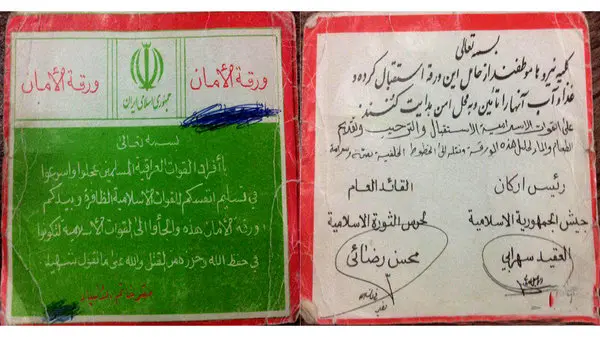 ورقة الأمان
ورقة الأمان
جمهوری اسلامی ایران
بسمه تعالى
يا أفراد القوات العراقية المسلمين عجلوا واسرعوا
في تسليم انفسكم للقوات الاسلامية الظافرة وبيدكم
ورقة الأمان هذه والجأوا الى القوات الاسلامية لتكونوا
في حفظ الله وحرز من القتل والله على ما نقول شهيد
بسمه تعالی
کلیه نیروها موظفند از حامل این ورقه استقبال کرده و
غذا و آب آنها را تامین و به محل امن هدایت کنند.
على القوات الاسلامية الاستقبال والترحيب وتقديم
الطعام والماء لحامل هذه الورقة ونقله الى الخطوط الخلفية
رئيس اركان
القائد العام
جيش الجمهورية الاسلامية
لحرس الثورة الاسلامية
العقيد سهرابي
محسن رضائي